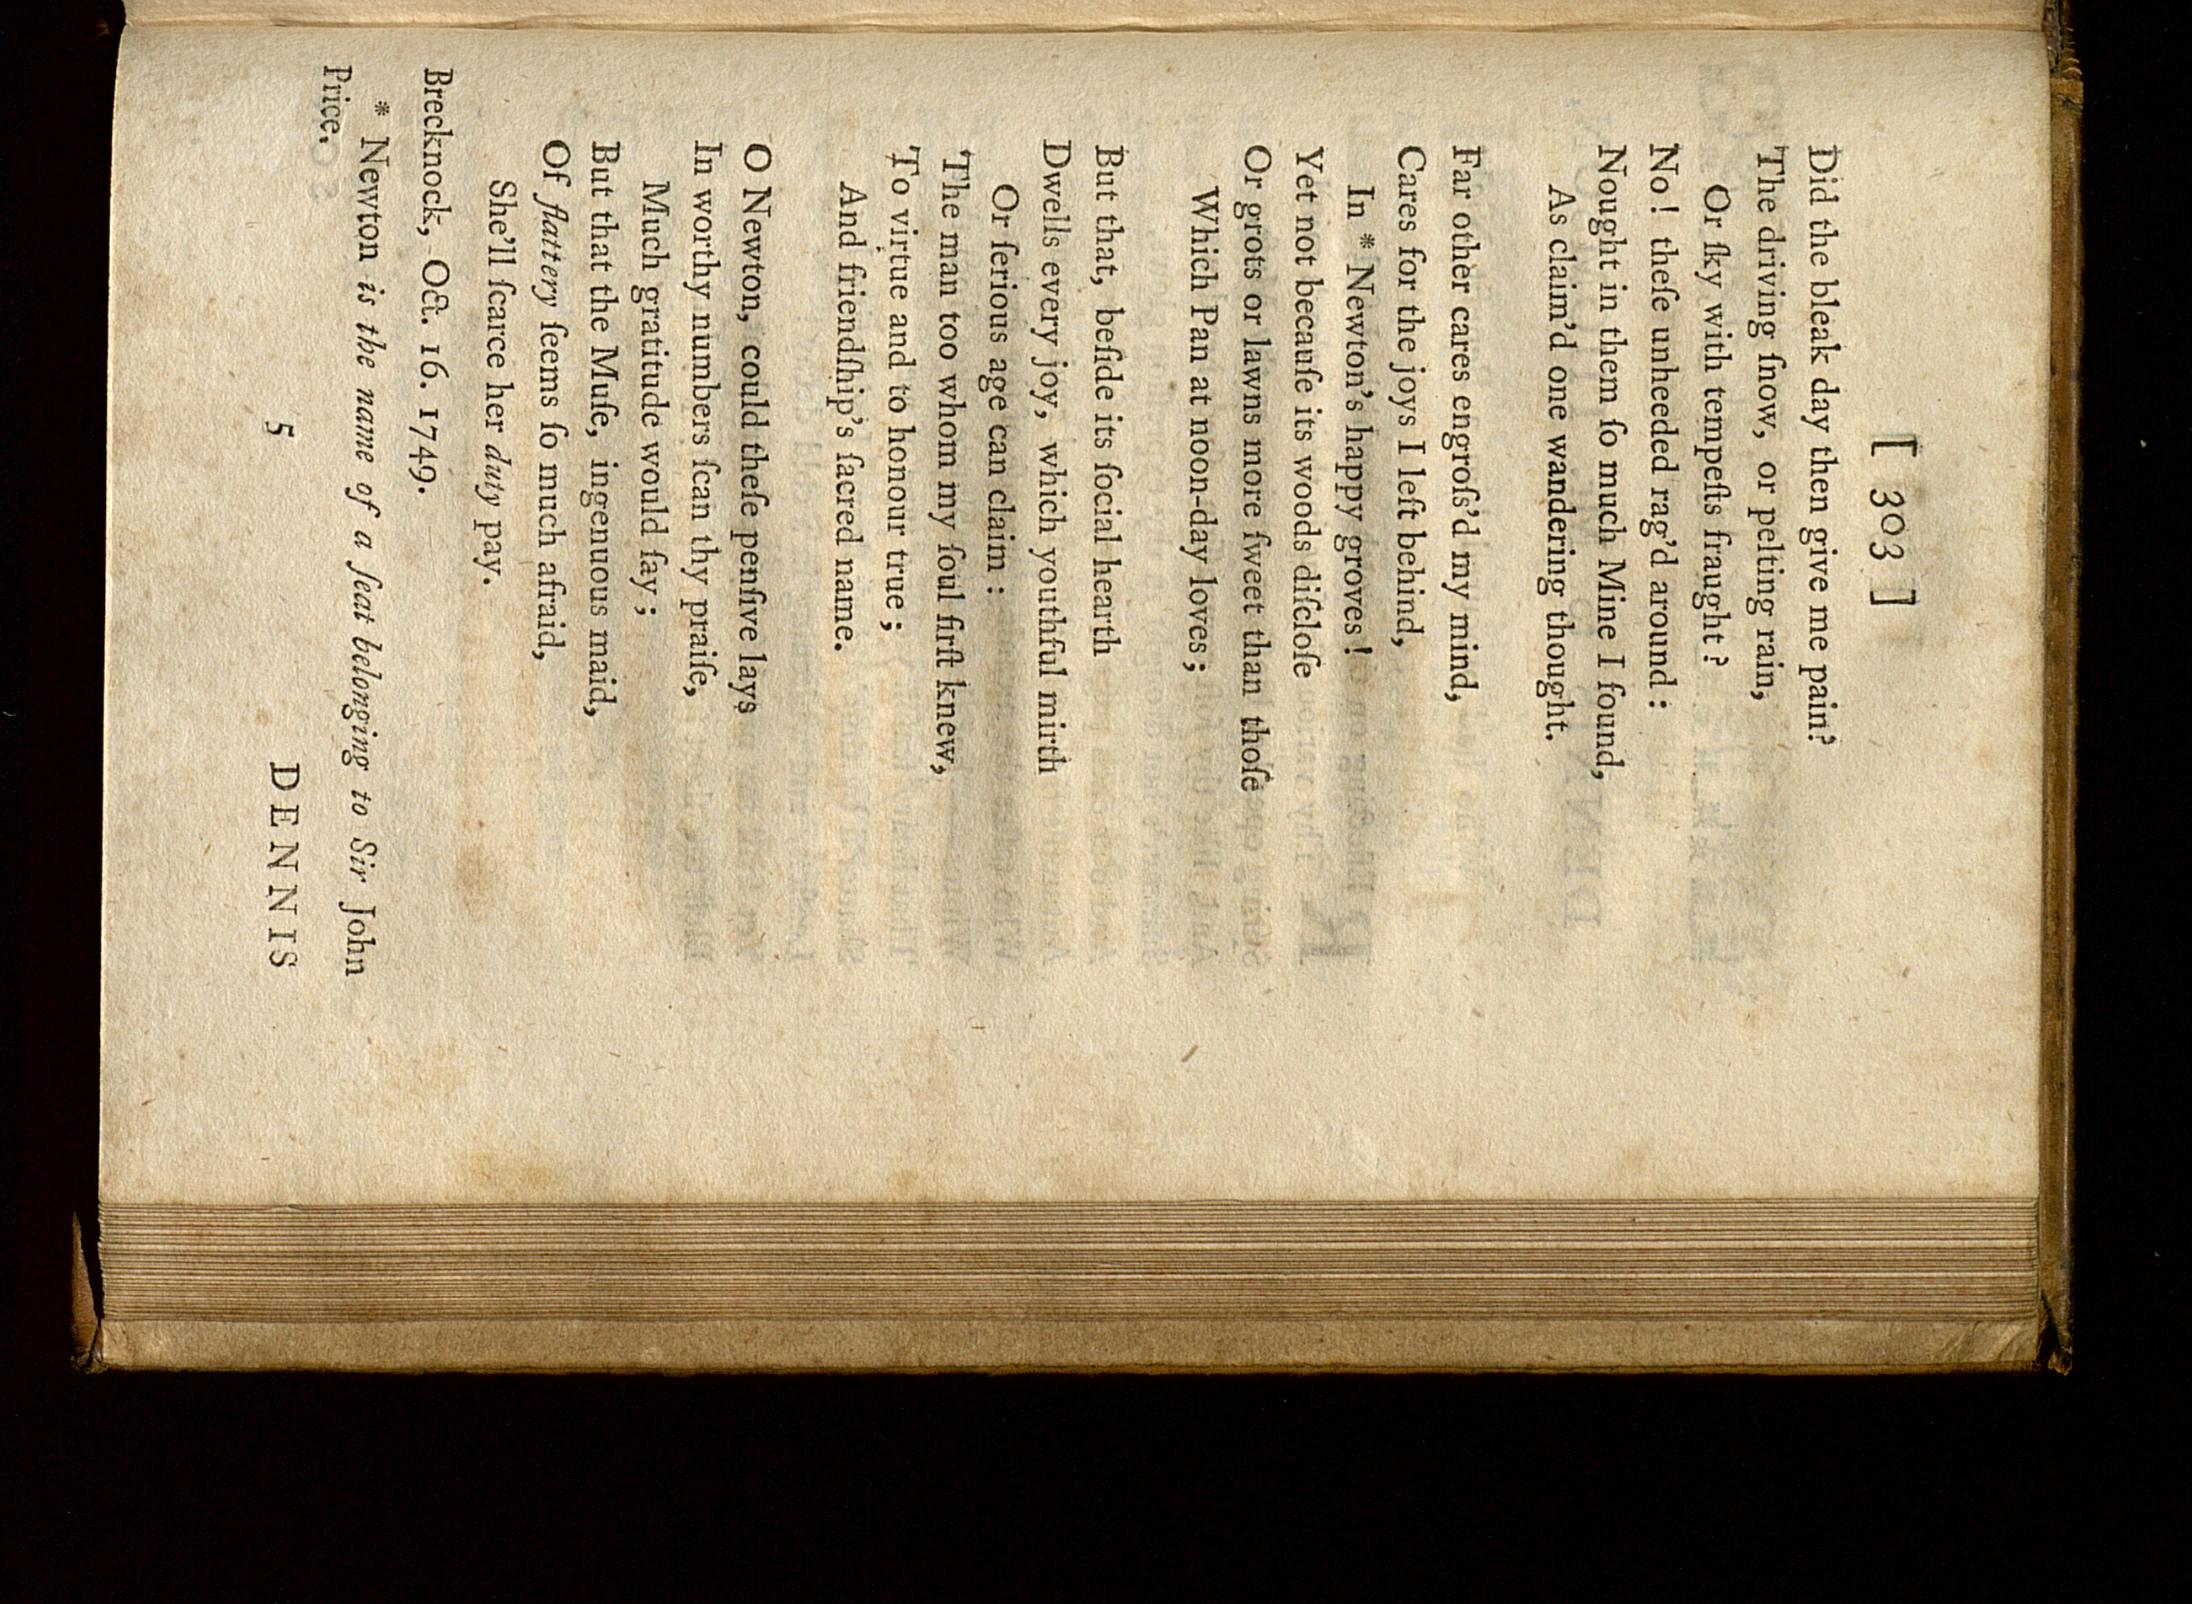 [ 303 ]
Did the bleak day then give me pain?
The driving ſnow, or pelting rain,
Or ſky with tempeſts fraught?
No! theſe unheeded rag'd around:
Nought in them ſo much Mine I found,
As claim'd one wandering thought.
Far other cares engroſs'd my mind,
Cares for the joys I left behind,
In * Newton's happy groves!
Yet not becauſe its woods diſcloſe
Or grots or lawns more ſweet than thoſe
Which Pan at noon-day loves;
But that, beſide its ſocial hearth
Dwells every joy, which youthful mirth
Or ſerious age can claim:
The man too whom my ſoul firſt knew,
To virtue and to honour true;
And friendſhip's ſacred name.
O Newton, could theſe penſive lays
In worthy numbers ſcan thy praiſe,
Much gratitude would ſay;
But that the Muſe, ingenuous maid,
Of flattery ſeems ſo much afraid,
She'll ſcarce her duty pay.
Brecknock, Oct. 16. 1749.
* Newton is the name of a ſeat belonging to Sir John
Price.
5 DENNIS